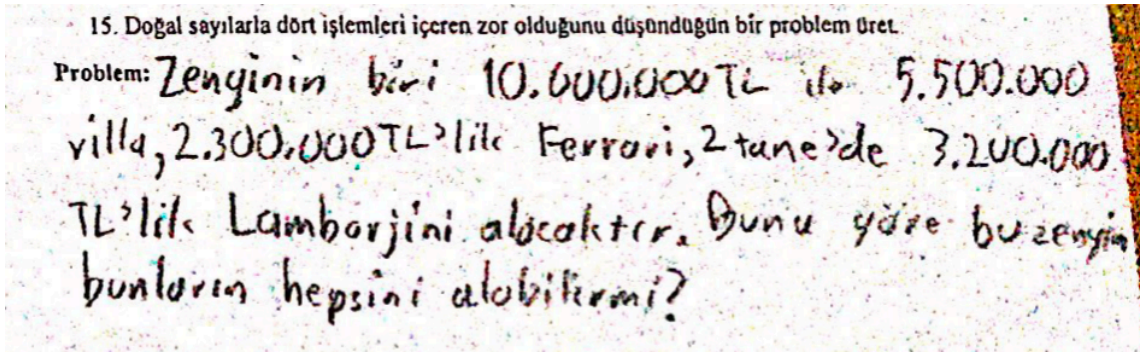 15. Doğal sayılarla dört işlemleri içeren zor olduğunu düşündüğün bir problem üret.
Problem: Zenginin biri 10.000.000 TL ile 5.500.000
villa, 2.300.000 TL'lik Ferrari, 2 tane'de 3.200.000
TL'lik Lamborjini alacaktır. Buna göre bu zengin
bunların hepsini alabilirmi?